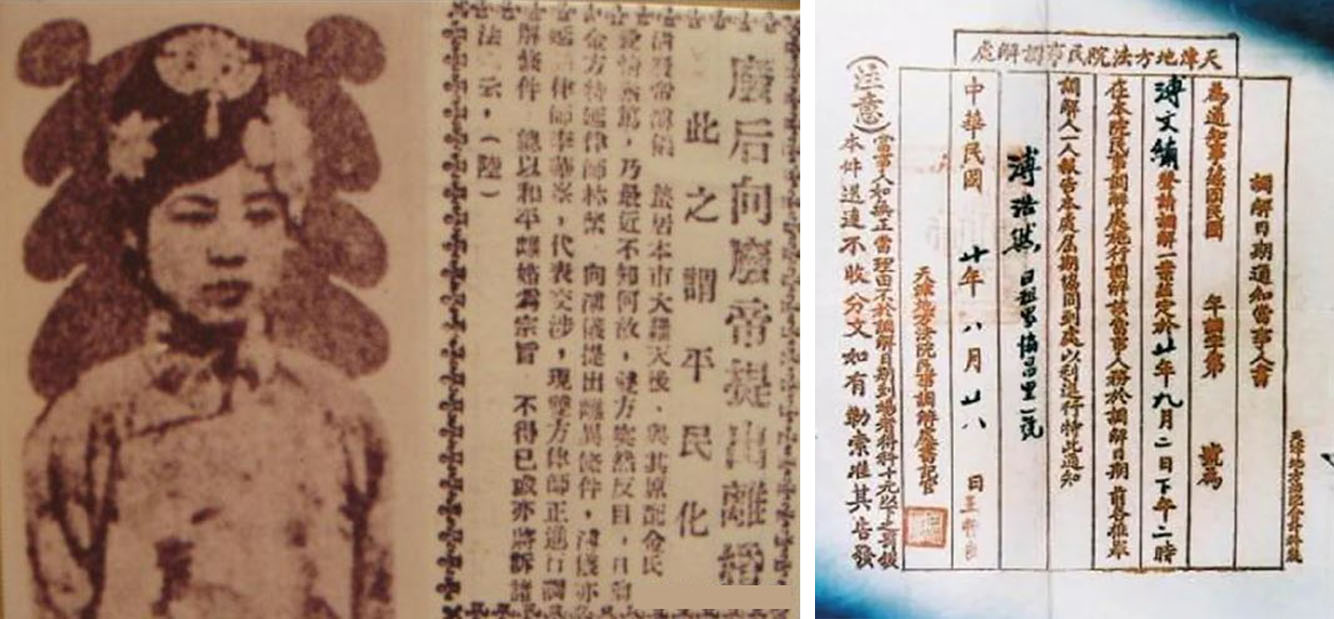 廢后向廢帝提出離婚
此之謂平民化
清廢帝溥儀 旅居本市大羅天後、與其原配金氏
愛情素篤,乃最近不知何故,雙方突然反目,日前
金方特延律師林棨 向溥儀提出離異條件,溥儀亦
延 律師李華岑,代表交涉,現雙方律師正進行調
解條件 總以和平離婚為宗旨 不得已或亦將訴諸
法 云,(陸)
天津地方法院民事調解處
調解日期通知當事人書
為通知事緣因民國 年調字第 號為
溥文繡聲請調解一案茲定於廿年九月二日下午二時
在本院民事調解處施行調解該當事人務於調解日期前各推舉
調解人一人報告本處屆期協同到處以利進行特此通知
溥浩然 日租界協昌里一號
中華民國 廿年 八月 廿八 日
天津地方法院民事調解處書記官
(注意)當事人如無正當理由不於調解日期到場者得科十元以下之罰鍰
本件送達不收分文如有勒索准其告發